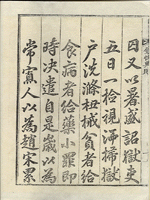 因又以暑盛詔獄吏
五日一檢視洒掃獄
戶洗滌杻械貧者給
食病者給藥小罪即
時決遣自是歲以為
常寔人以為趙宋累